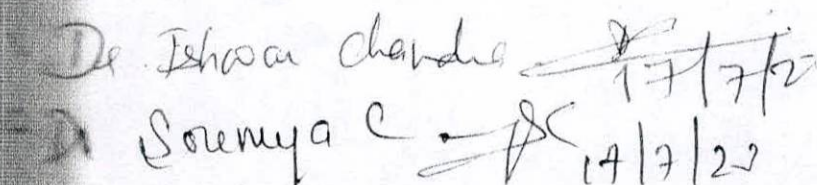 Dr. Ishwar Chandra 17/7/2
Dr Soumya C 17/7/23